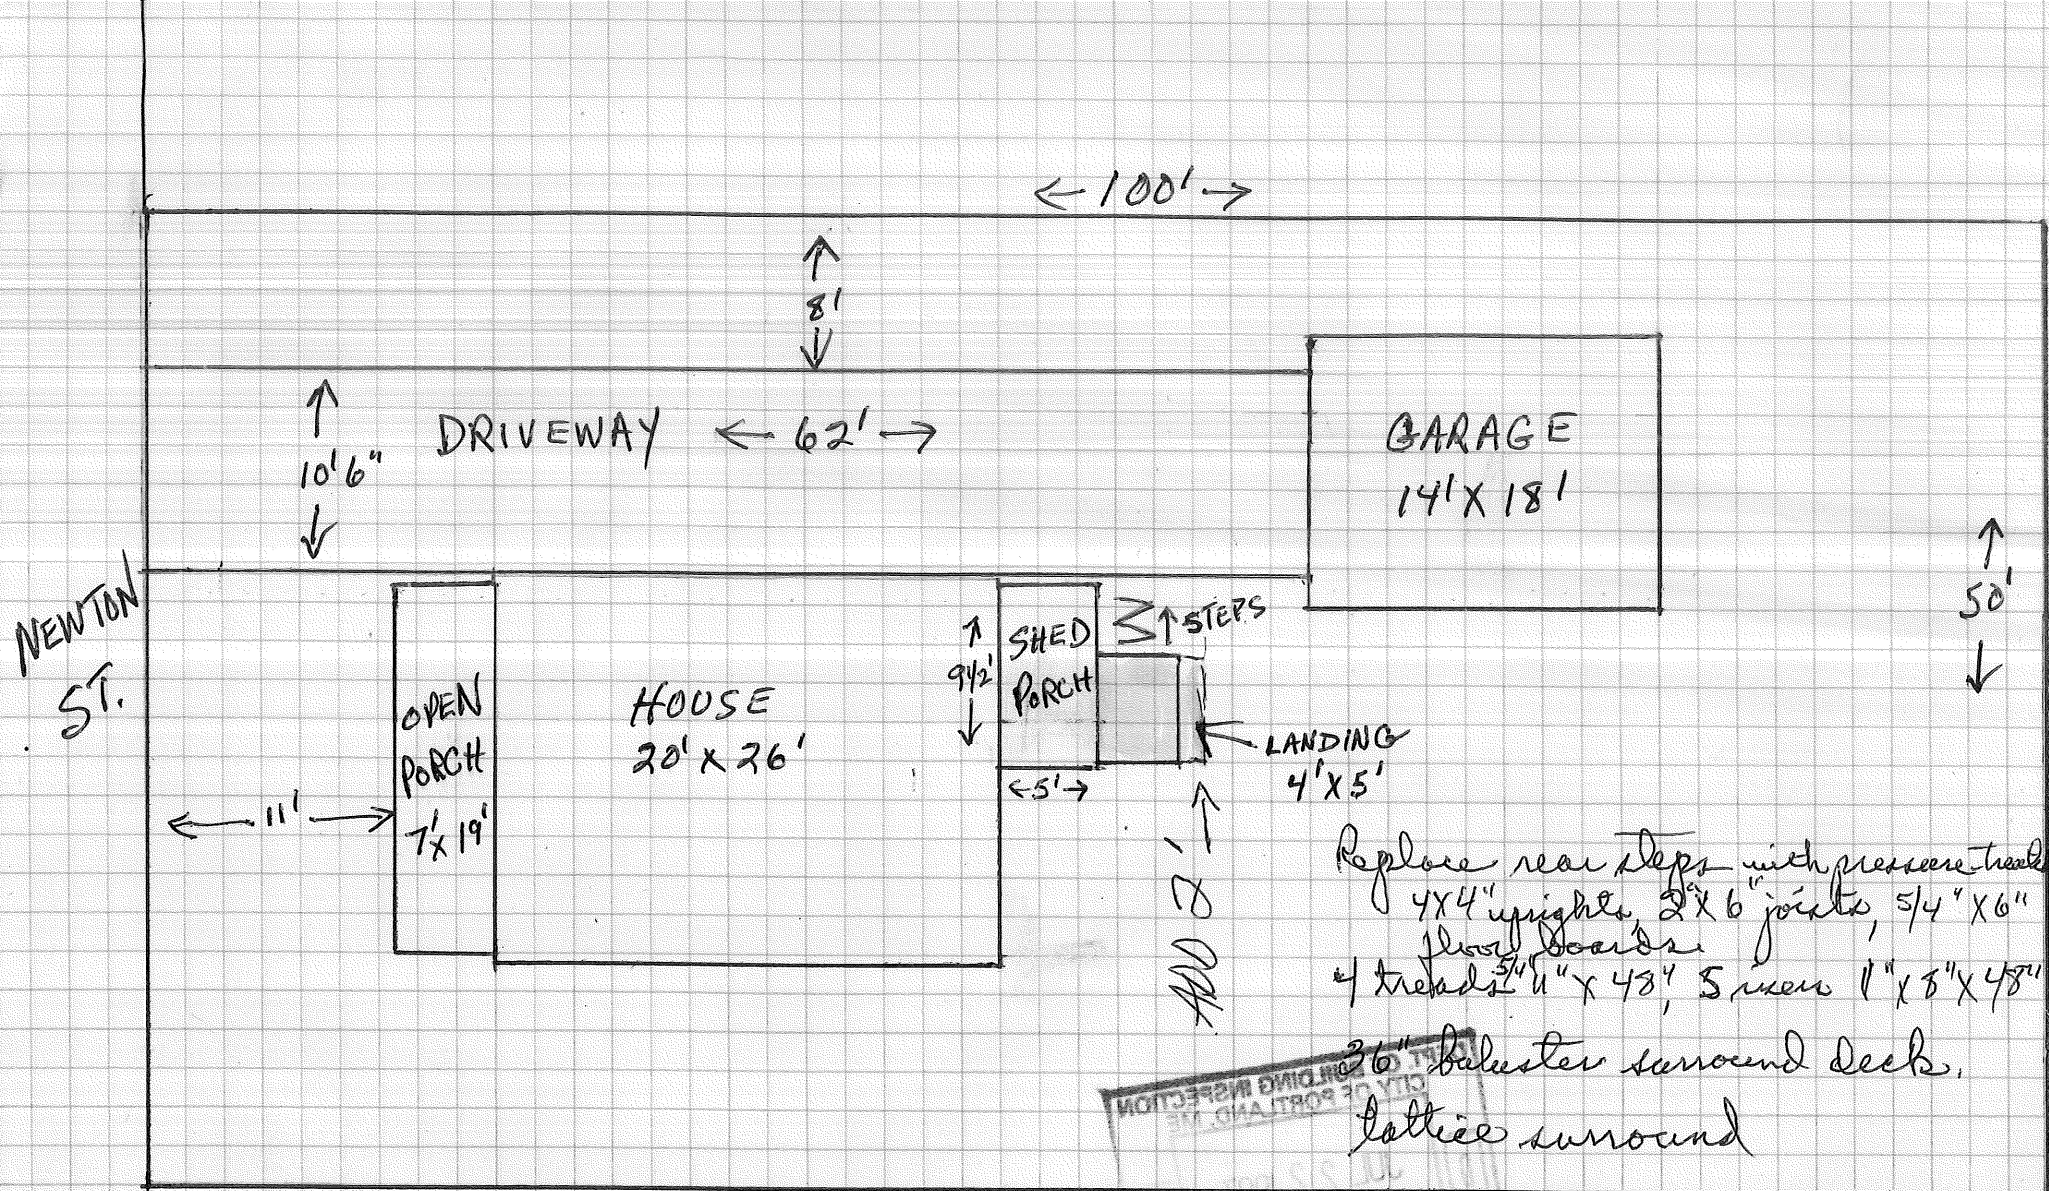 ← 100' →
8'
DRIVEWAY ← 62' →
10'6"
GARAGE
14' X 18'
50'
NEWTON
ST.
STEPS
SHED
PORCH
9 1/2'
←5'→
OPEN
PORCH
7' X 19'
HOUSE
20' X 26'
LANDING
4' X 5'
← 11' →
Replace rear steps with pressure-
4X4" uprights, 2"X6" joists, 5/4"X6"
floor boards.
4 treads 5/4" 11" X 48", 5 risers 1"X8"X48"
36" baluster surround deck.
lattice surround
DEPT. OF BUILDING INSPECTION
CITY OF PORTLAND, ME
JUL 22